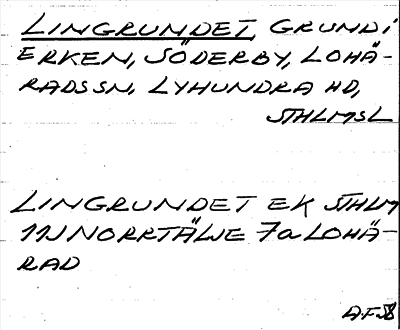 LINGRUNDET, GRUND i
ERKEN, SÖDERBY, LOHÄ-
RADS SN, LYHUNDRA HD,
STHLMS L
LINGRUNDET EK STHLM
11J NORRTÄLJE 7a LOHÄ-
RAD